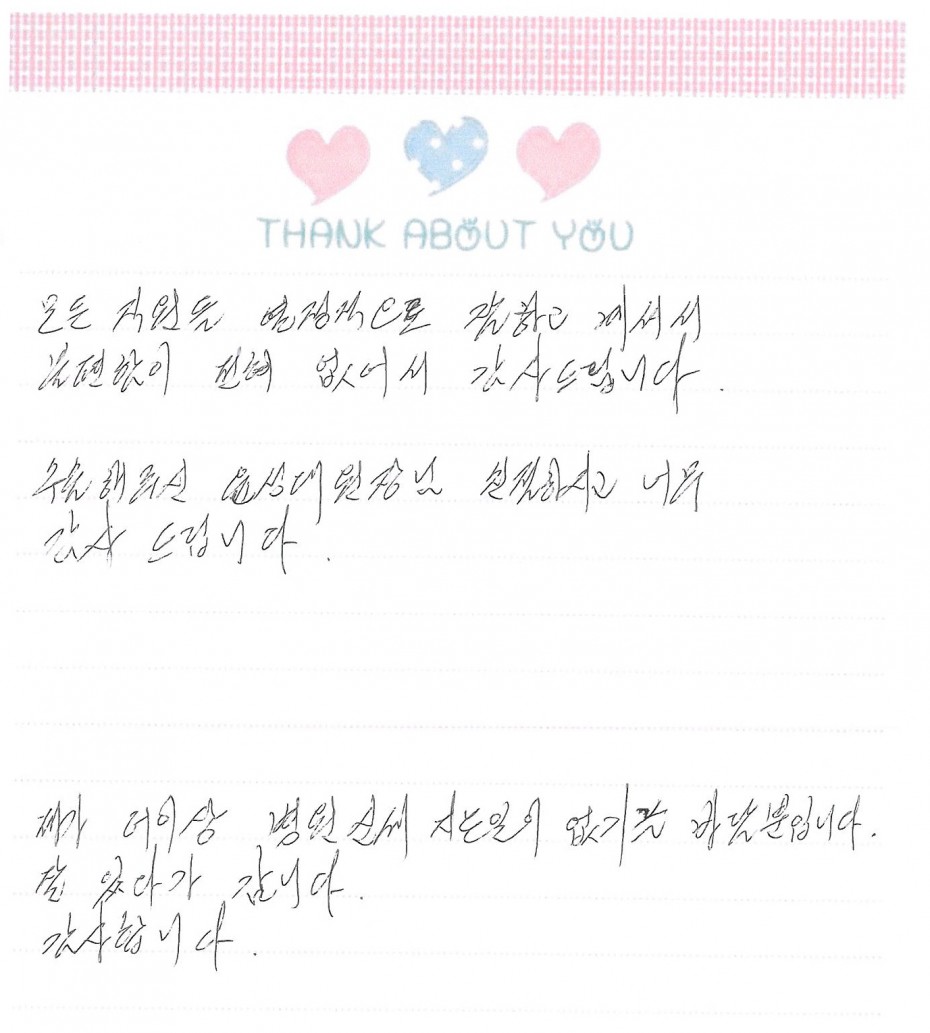 THANK ABOUT YOU
모든 직원들 열정적으로 잘하고 계셔서
불편함이 전혀 없어서 감사드립니다.
수술해주신 윤상대원장님 친절하시고 너무
감사 드립니다.
제가 더이상 병원신세 지는일이 없기를 바랄뿐입니다.
잘 있다가 갑니다.
감사합니다.